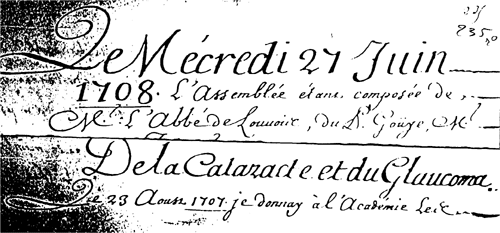 235
Le Mécredi 27 Juin
1708. L'Assemblée étant composée de
Mrs. L'Abbé de Louvois, du Sr. Gouye, Mr
De la Catazacte et du Glaucoma.
Le 23 Aoust 1707. je donnay à l'Académie